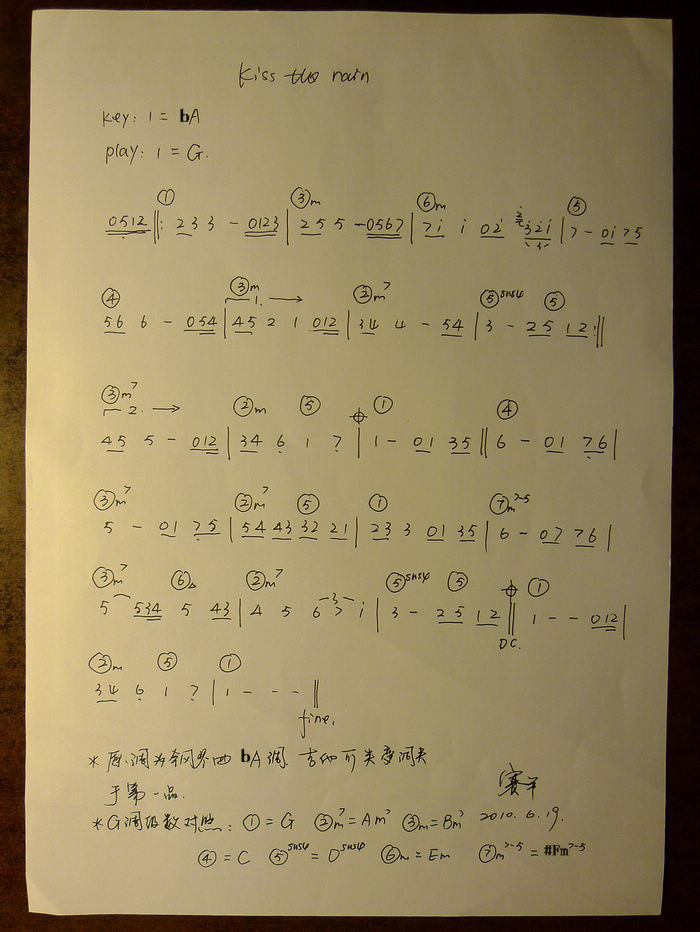 Kiss the rain
key: 1 = bA
play: 1 = G.
① ③m ⑥m ⑤
0512 ‖: 2 3 3 - 0123 | 2 5 5 - 0567 | 7 i i 0 2 3 2 i | 7 - 0 i 7 5
④ ③m 1. ②m7 ⑤sus4 ⑤
5 6 6 - 0 5 4 | 4 5 2 1 0 1 2 | 3 4 4 - 5 4 | 3 - 2 5 1 2 :‖
③m7 2. ②m ⑤ ① ④
4 5 5 - 0 1 2 | 3 4 6 1 7 | 1 - 0 1 3 5 ‖ 6 - 0 1 7 6 |
③m7 ②m7 ⑤ ① ⑦m7-5
5 - 0 1 7 5 | 5 4 4 3 3 2 2 1 | 2 3 3 0 1 3 5 | 6 - 0 7 7 6 |
③m7 ⑥△ ②m7 3 ⑤sus4 ⑤ ①
5 5 3 4 5 4 3 | 4 5 6 7 i | 3 - 2 5 1 2 ‖ 1 - - 0 1 2 |
D.C.
②m ⑤ ①
3 4 6 1 7 | 1 - - - ‖
fine.
* 原调为钢琴曲 bA调. 吉他可类变调夹
于第一品.
* G调级数对照: ① = G ②m7 = Am7 ③m = Bm7 2010.6.19.
④ = C ⑤sus4 = Dsus4 ⑥m = Em ⑦m7-5 = #Fm7-5